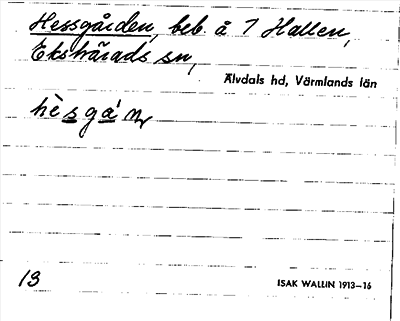 Hessgården, beb. å 7 Hallen,
Ekshärads sn,
Älvdals hd, Värmlands län
hèsgá̊n
13
ISAK WALLIN 1913–16